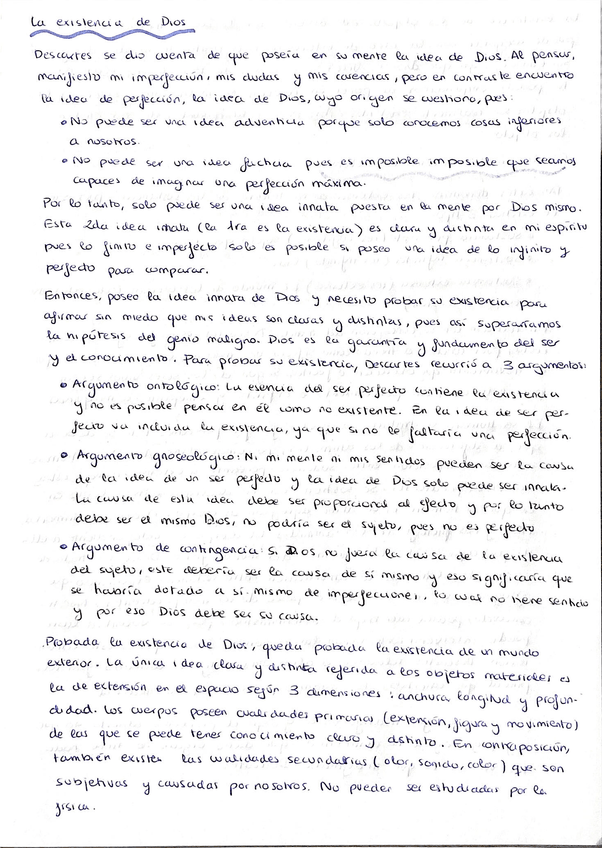 La existencia de Dios
Descartes se dio cuenta de que poseía en su mente la idea de Dios. Al pensar,
manifiesto mi imperfección, mis dudas y mis carencias, pero en contraste encuentro
la idea de perfección, la idea de Dios, cuyo origen se cuestiona, pues:
• No puede ser una idea adventicia porque solo conocemos cosas inferiores
a nosotros.
• No puede ser una idea facticia pues es imposible imposible que seamos
capaces de imaginar una perfección máxima.
Por lo tanto, solo puede ser una idea innata puesta en la mente por Dios mismo.
Esta 2da idea innata (la 1ra es la existencia) es clara y distinta en mi espíritu
pues lo finito e imperfecto solo es posible si poseo una idea de lo infinito y
perfecto para comparar.
Entonces, poseo la idea innata de Dios y necesito probar su existencia para
afirmar sin miedo que mis ideas son claras y distintas, pues así superaríamos
la hipótesis del genio maligno. Dios es la garantía y fundamento del ser
y el conocimiento. Para probar su existencia, Descartes recurrió a 3 argumentos:
• Argumento ontológico: La esencia del ser perfecto contiene la existencia
y no es posible pensar en él como no existente. En la idea de ser per-
fecto va incluida la existencia, ya que si no le faltaría una perfección.
• Argumento gnoseológico: Ni mi mente ni mis sentidos pueden ser la causa
de la idea de un ser perfecto y la idea de Dios solo puede ser innata.
La causa de esta idea debe ser proporcional al efecto y por lo tanto
debe ser el mismo Dios, no podría ser el sujeto, pues no es perfecto
• Argumento de contingencia: si Dios no fuera la causa de la existencia
del sujeto, este debería ser la causa de sí mismo y eso significaría que
se habría dotado a sí mismo de imperfecciones, lo cual no tiene sentido
y por eso Dios debe ser su causa.
Probada la existencia de Dios, queda probada la existencia de un mundo
exterior. La única idea clara y distinta referida a los objetos materiales es
la de extensión en el espacio según 3 dimensiones: anchura longitud y profun-
didad. Los cuerpos poseen cualidades primarias (extensión, figura y movimiento)
de las que se puede tener conocimiento claro y distinto. En contraposición,
también existen las cualidades secundarias (olor, sonido, color) que son
subjetivas y causadas por nosotros. No pueden ser estudiadas por la
física.